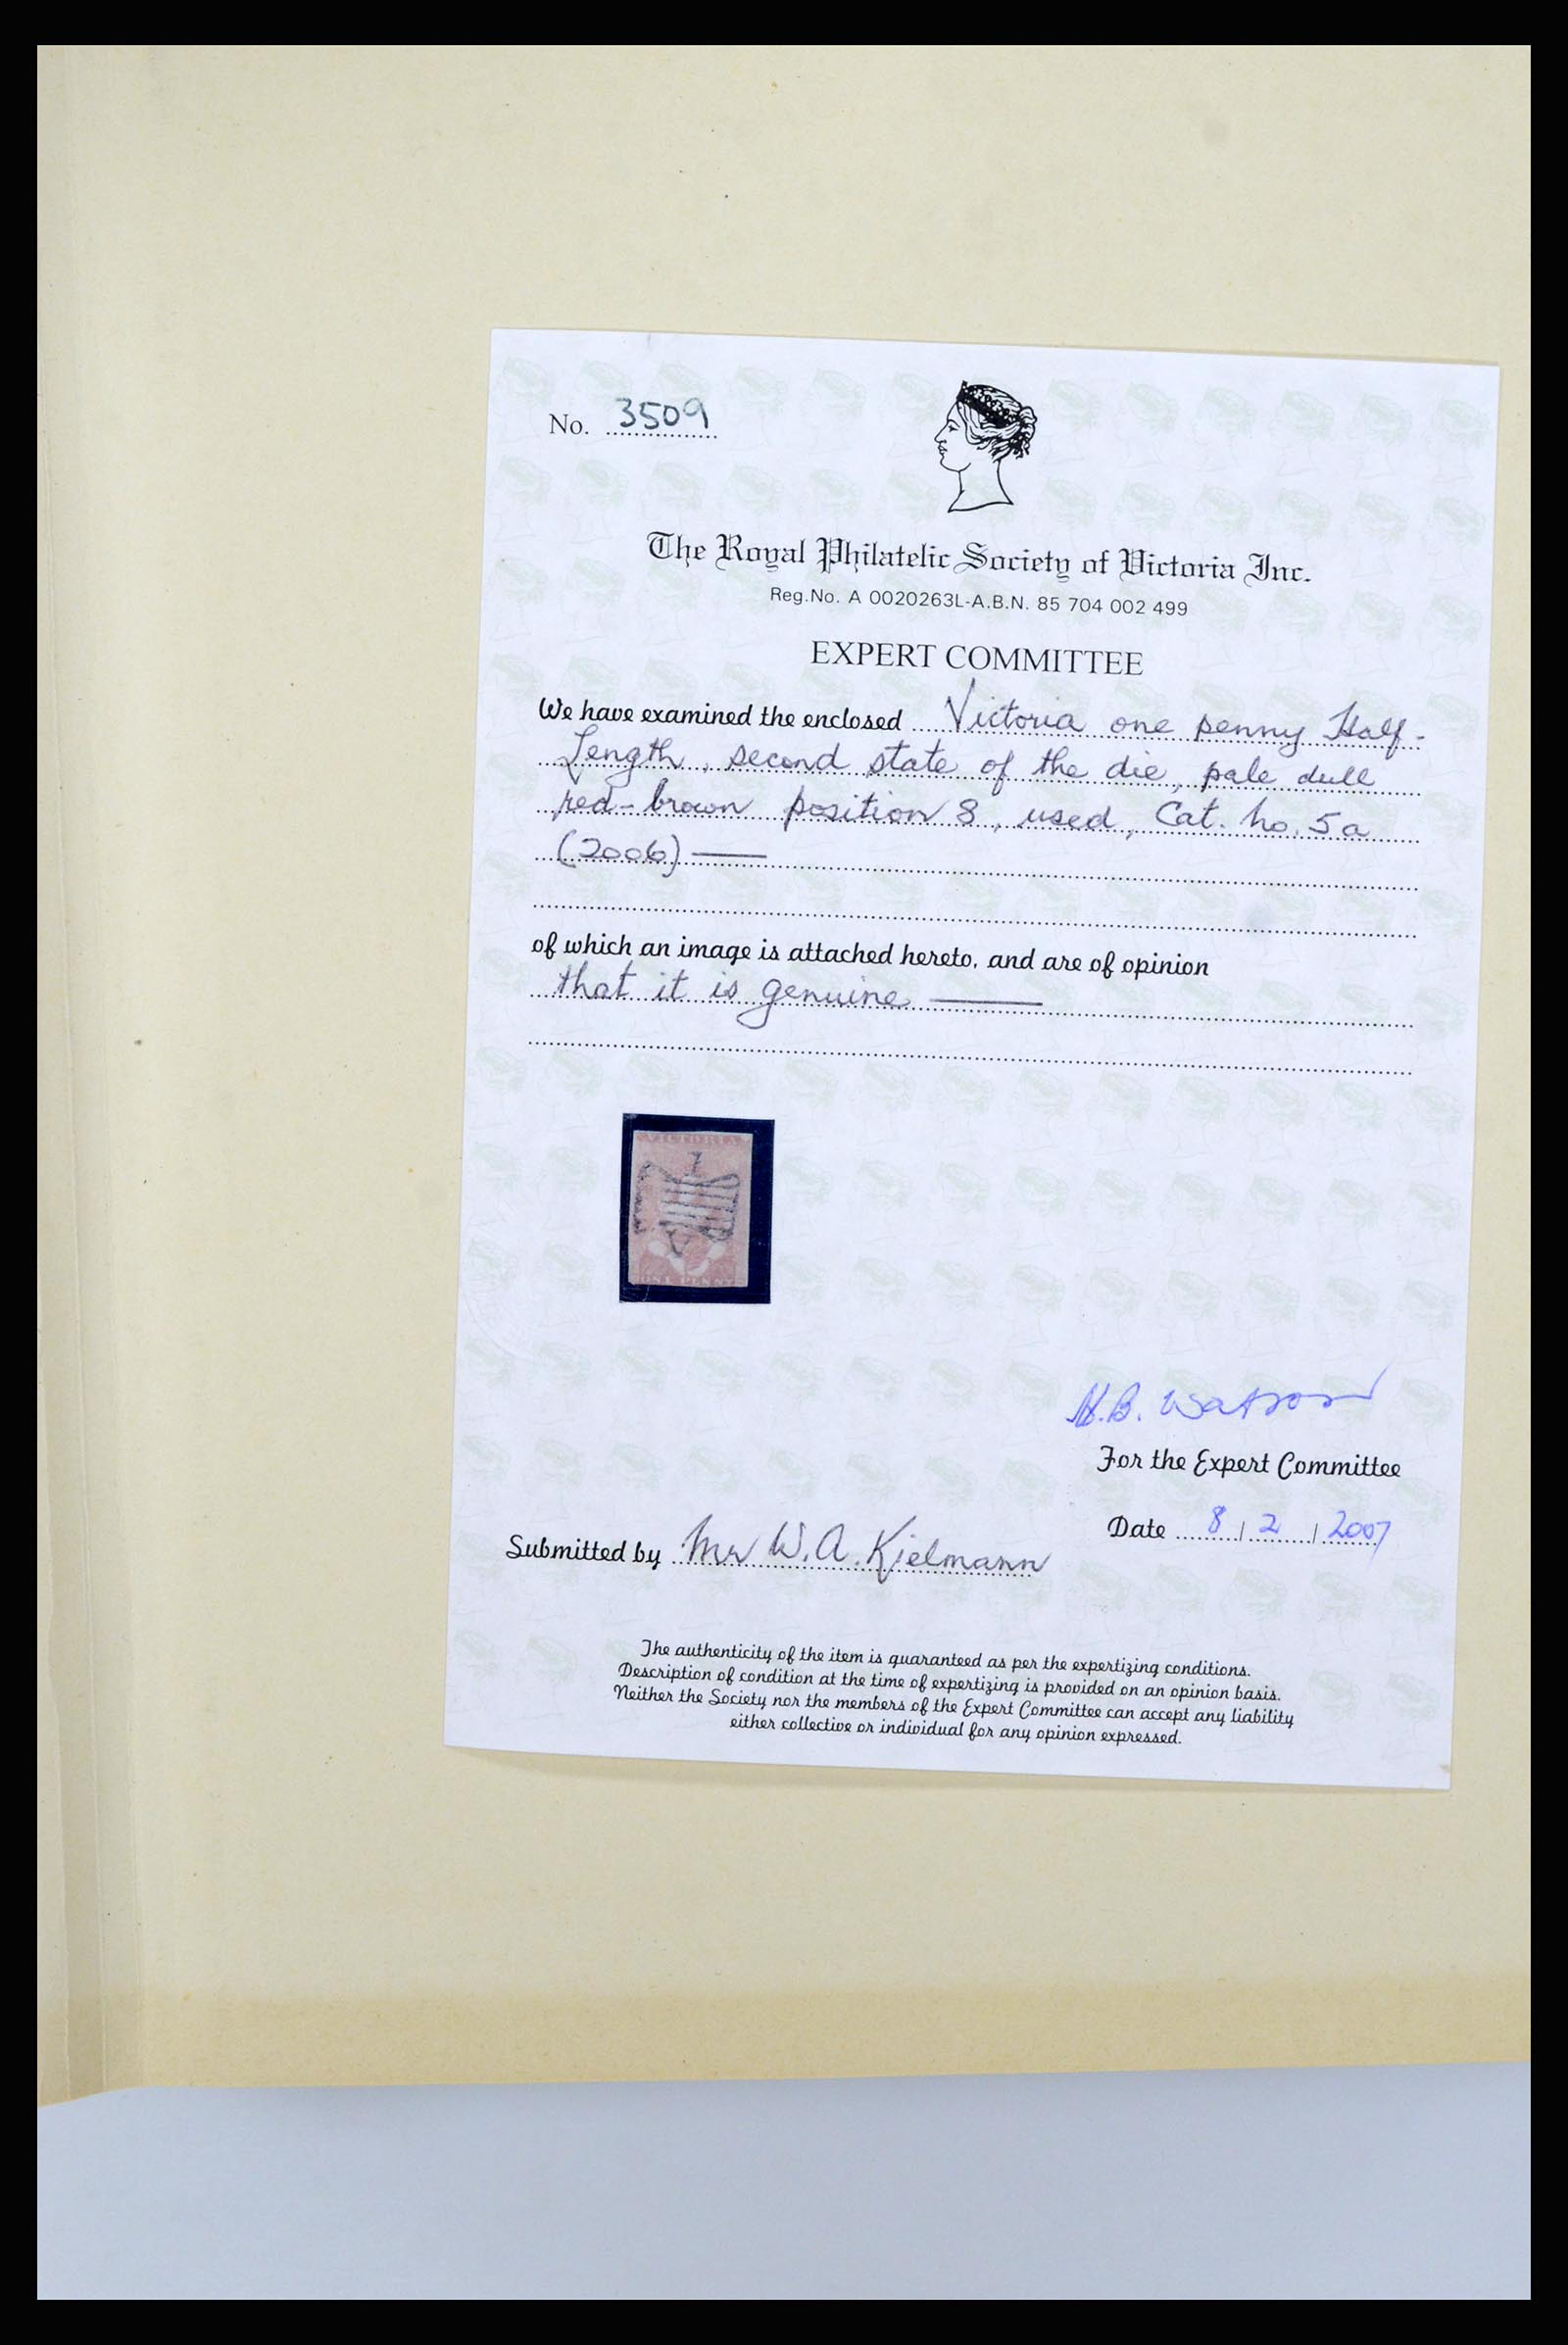 No. 3509
The Royal Philatelic Society of Victoria Inc.
Reg.No. A 0020263L-A.B.N. 85 704 002 499
EXPERT COMMITTEE
We have examined the enclosed Victoria one penny Half-
Length, second state of the die, pale dull
red-brown position 8, used, Cat. no. 5a
(2006)
of which an image is attached hereto, and are of opinion
that it is genuine
VICTORIA
1
ONE PENNY
H.B. Watson
For the Expert Committee
Date 8/2/2007
Submitted by Mr W.A. Kielmann
The authenticity of the item is guaranteed as per the expertizing conditions.
Description of condition at the time of expertizing is provided on an opinion basis.
Neither the Society nor the members of the Expert Committee can accept any liability
either collective or individual for any opinion expressed.